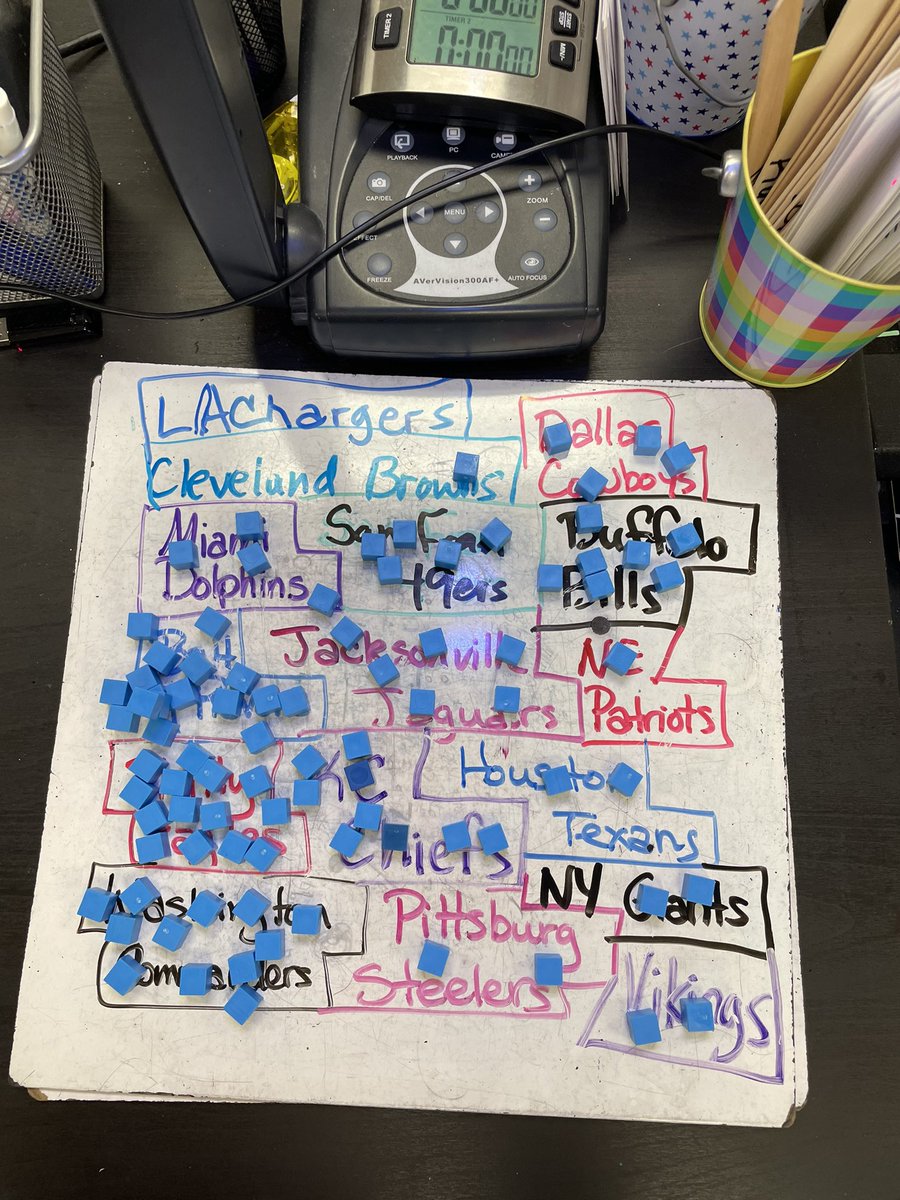 0:0000
TIMER 2
TIMER 2
0:0000
START
STOP
MIN
PLAYBACK
PC
CAP/DEL
ZOOM
MENU
FREEZE
AUTO FOCUS
AVerVision300AF+
LA Chargers
Cleveland Browns
Dallas
Cowboys
Miami
Dolphins
San Fran
49ers
Buffalo
Bills
Jacksonville
Jaguars
NE
Patriots
KC
Chiefs
Houston
Texans
Washington
Commanders
Pittsburg
Steelers
NY Giants
Vikings